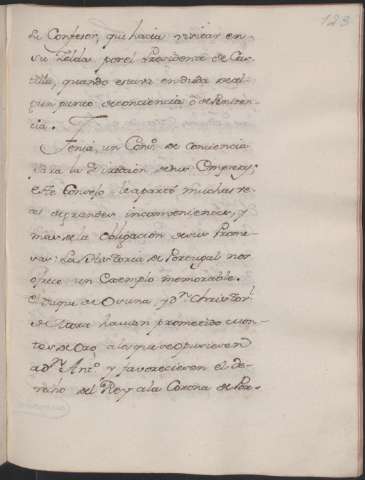 123
de Confesor, que hacia visitar en
su Zelda por el Presidente de Cas-
tilla, quando estava en duda de al-
gun punto de conciencia ô de Peniten-
cia.
Tenia un Cons.º de Conciencia
para la direccion de sus Empresas;
este Consejo le apartó muchas ve-
ces de grandes inconvenientes, y
mas de la obligacion de sus Prome-
sas: La Historia de Portugal nos
ofrece un Exemplo memorable.
El Duque de Osuna, y Dⁿ Christov.ˡ
de Mora havian prometido cuen-
tos de Oro, a los que se opusiesen
a Dⁿ Ant.º y favoreciesen el de-
recho del Rey a la Corona de Por-